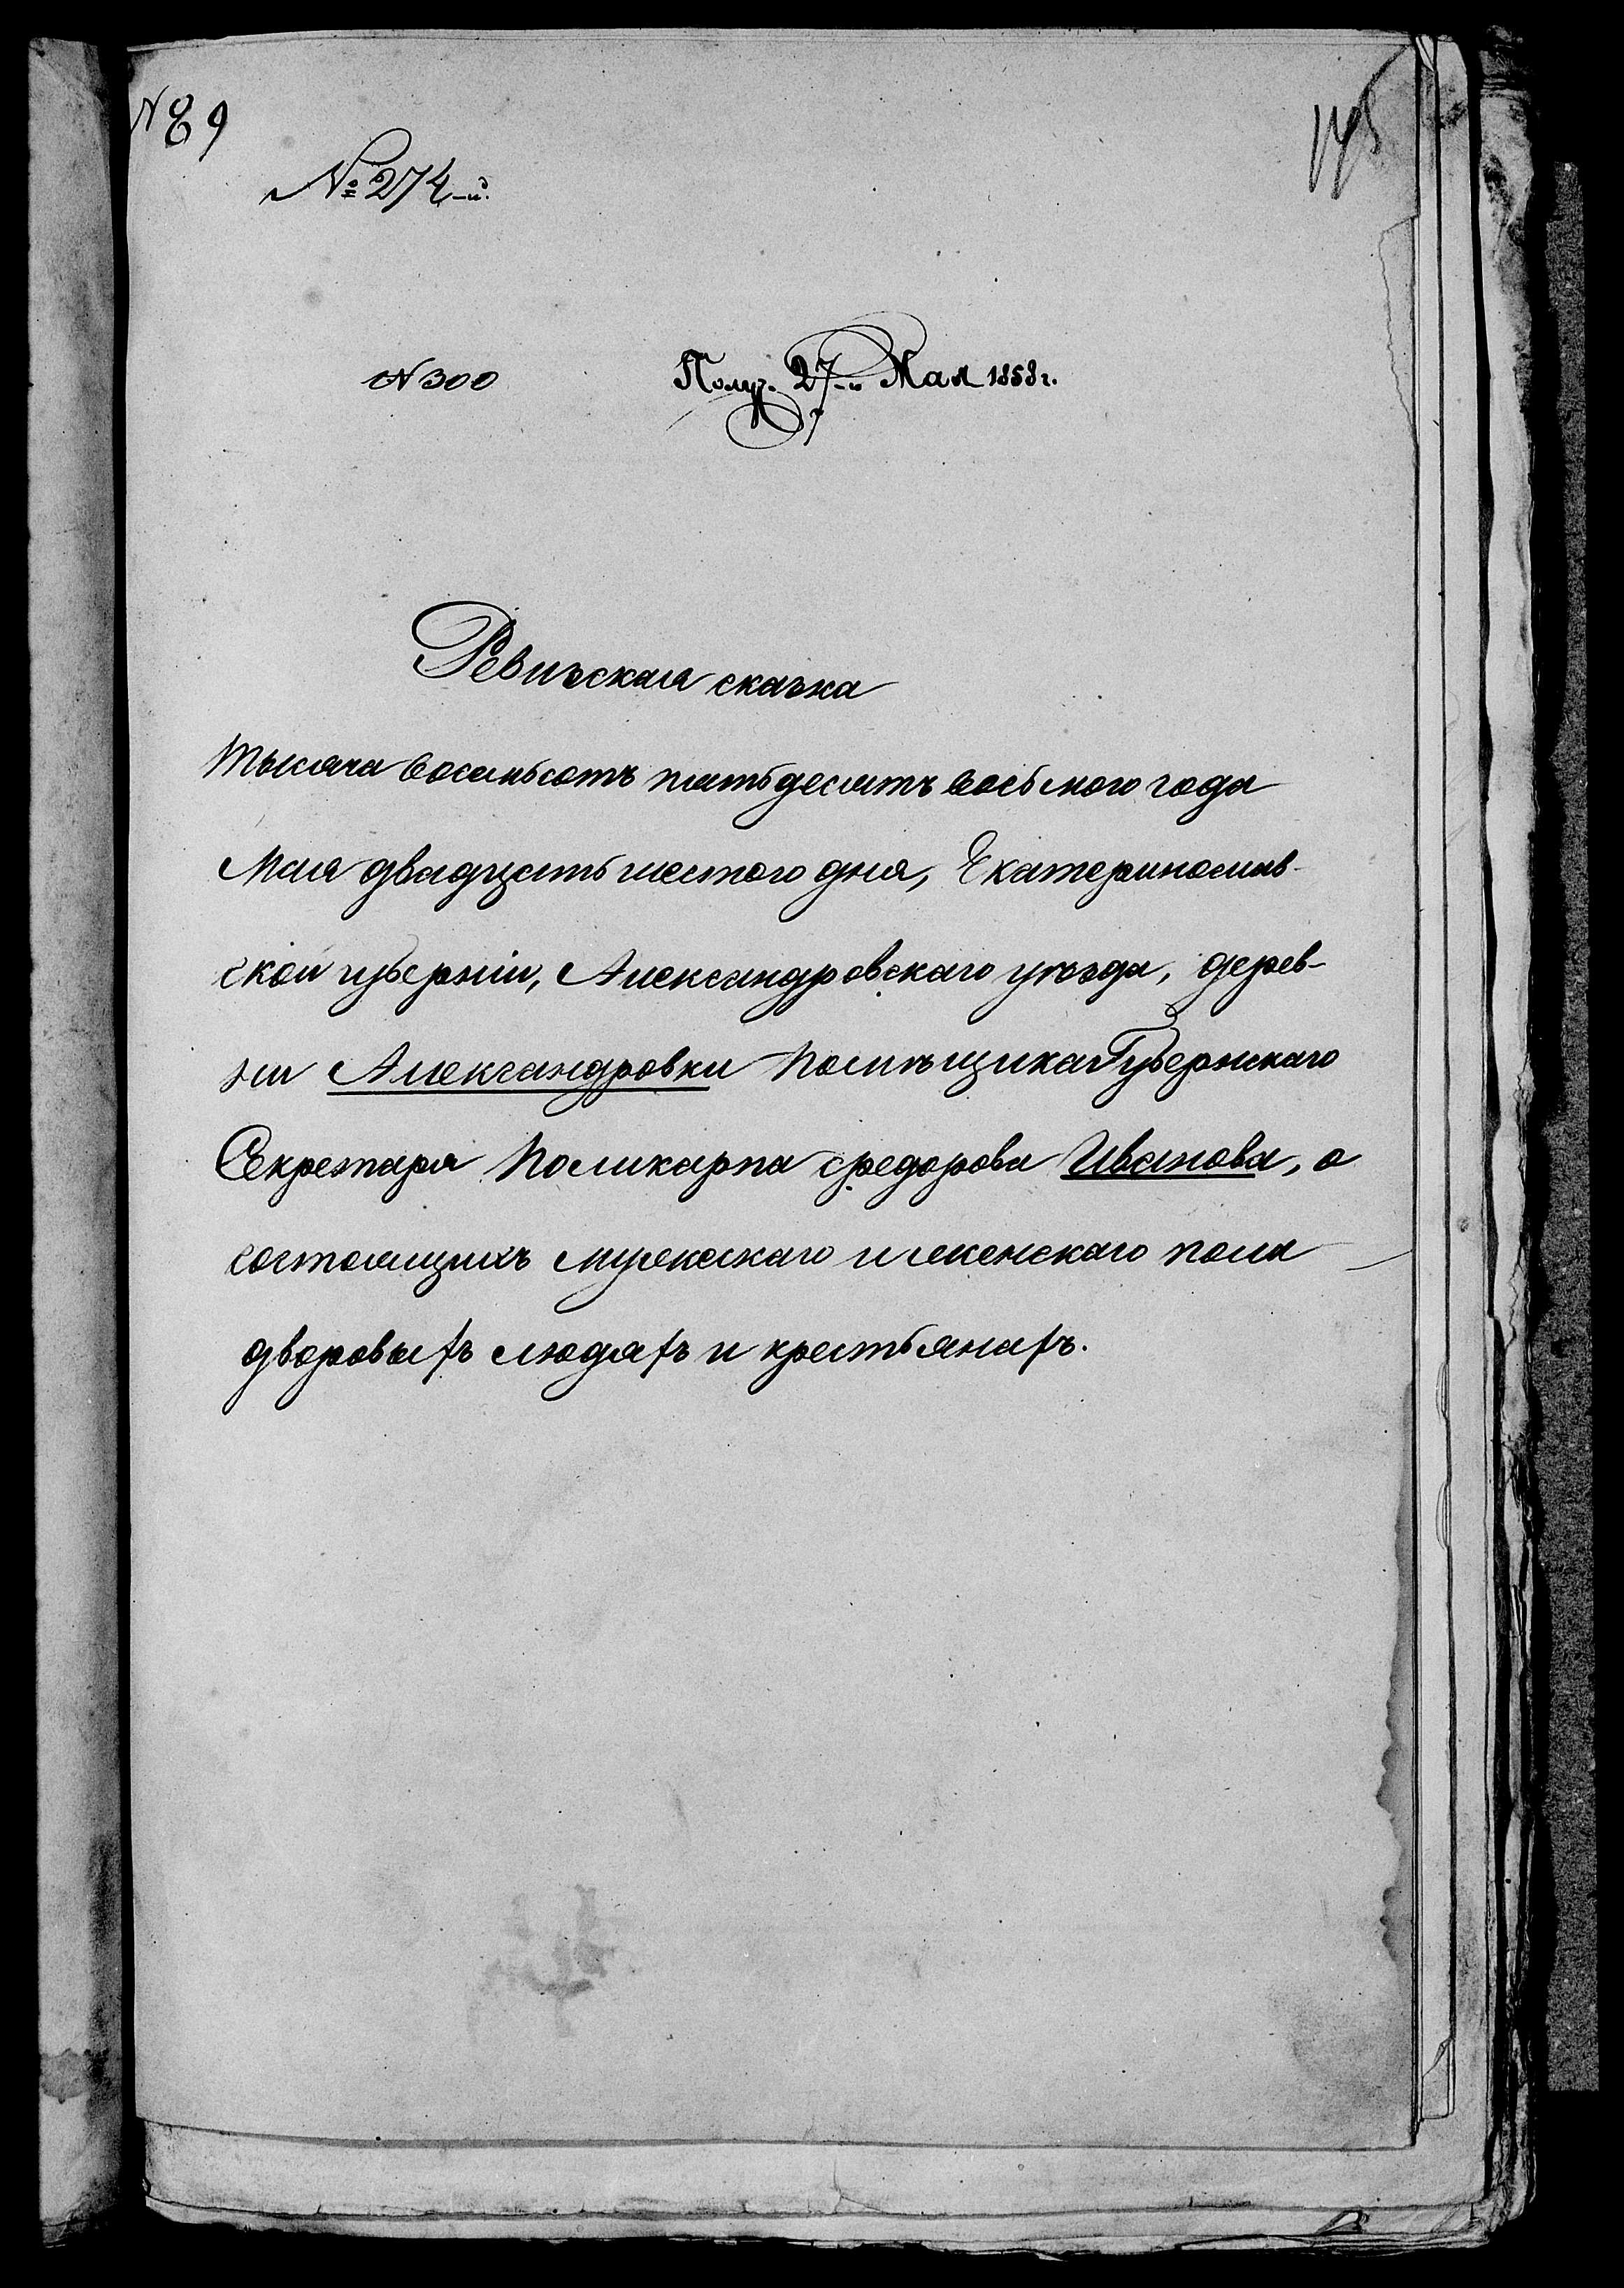 N 89
№ 274-й.
N 300
Получ. 27-го Мая 1858 г.
Ревизская сказка
тысяча восемьсотъ пятьдесятъ восьмого года
Мая двадцать шестого дня, Екатеринослав-
ской губерніи, Александровскаго уѣзда, дерев-
ни Александровки помѣщика Губернскаго
Секретаря Поликарпа Федорова Иванова, о
состоящихъ мужескаго и женскаго пола
дворовыхъ людяхъ и крестьянахъ.